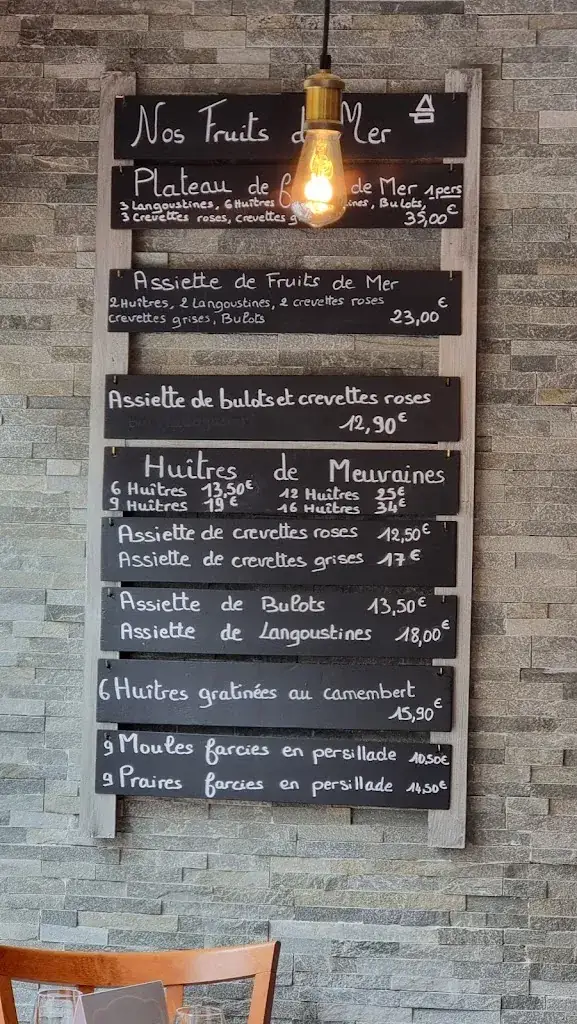 Nos Fruits d Mer
Plateau de de Mer 1 pers
3 Langoustines, 6 Huîtres ines, Bulots,
3 Crevettes roses, crevettes g 35,00€
Assiette de Fruits de Mer
2 Huîtres, 2 Langoustines, 2 crevettes roses
crevettes grises, Bulots 23,00€
Assiette de bulots et crevettes roses
12,90€
Huîtres de Meuvaines
6 Huîtres 13,50€ 12 Huîtres 25€
9 Huîtres 19€ 16 Huîtres 34€
Assiette de crevettes roses 12,50€
Assiette de crevettes grises 17€
Assiette de Bulots 13,50€
Assiette de Langoustines 18,00€
6 Huîtres gratinées au camembert
15,90€
9 Moules farcies en persillade 10,50€
9 Praires farcies en persillade 14,50€